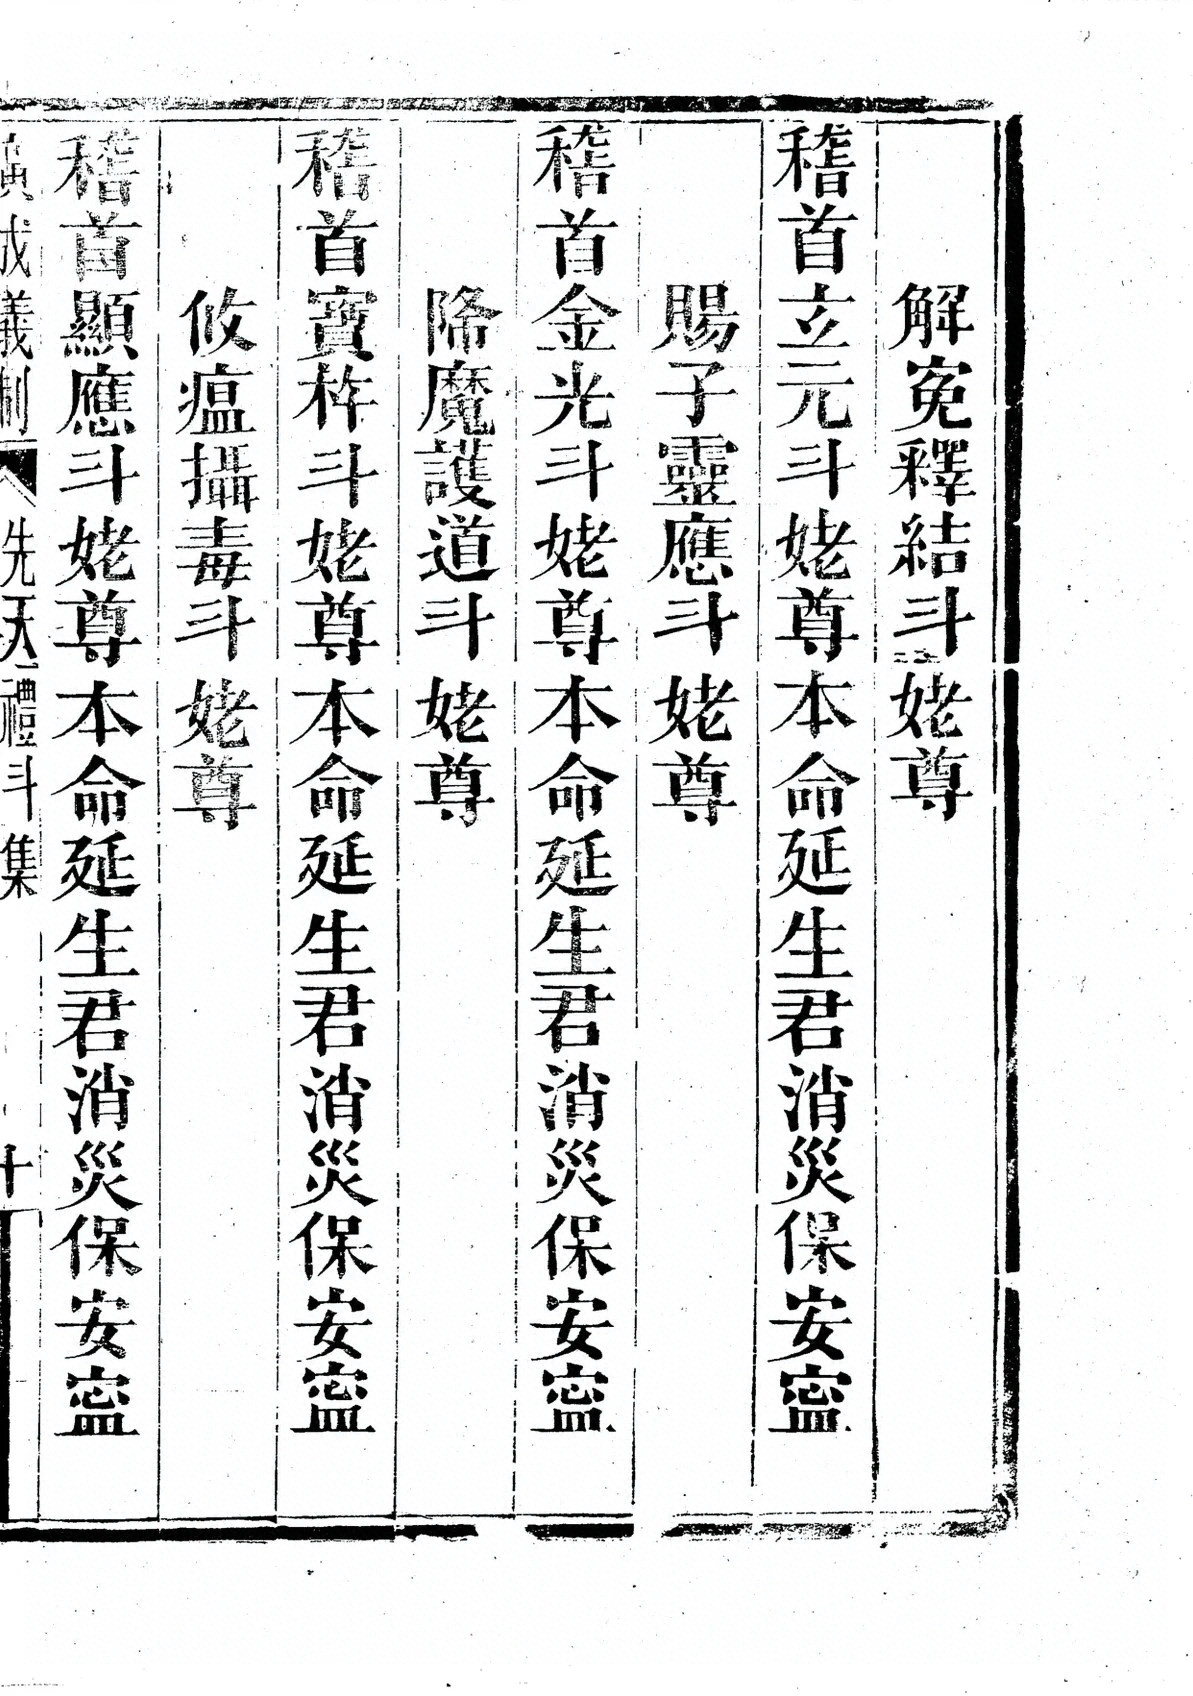 解寃釋結斗姥尊
稽首立元斗姥尊本命延生君消災保安寍
賜子靈應斗姥尊
稽首金光斗姥尊本命延生君消災保安寍
降魔護道斗姥尊
稽首寶杵斗姥尊本命延生君消災保安寍
收瘟攝毒斗姥尊
稽首顯應斗姥尊本命延生君消災保安寍
廣成儀制 先天禮斗集 十